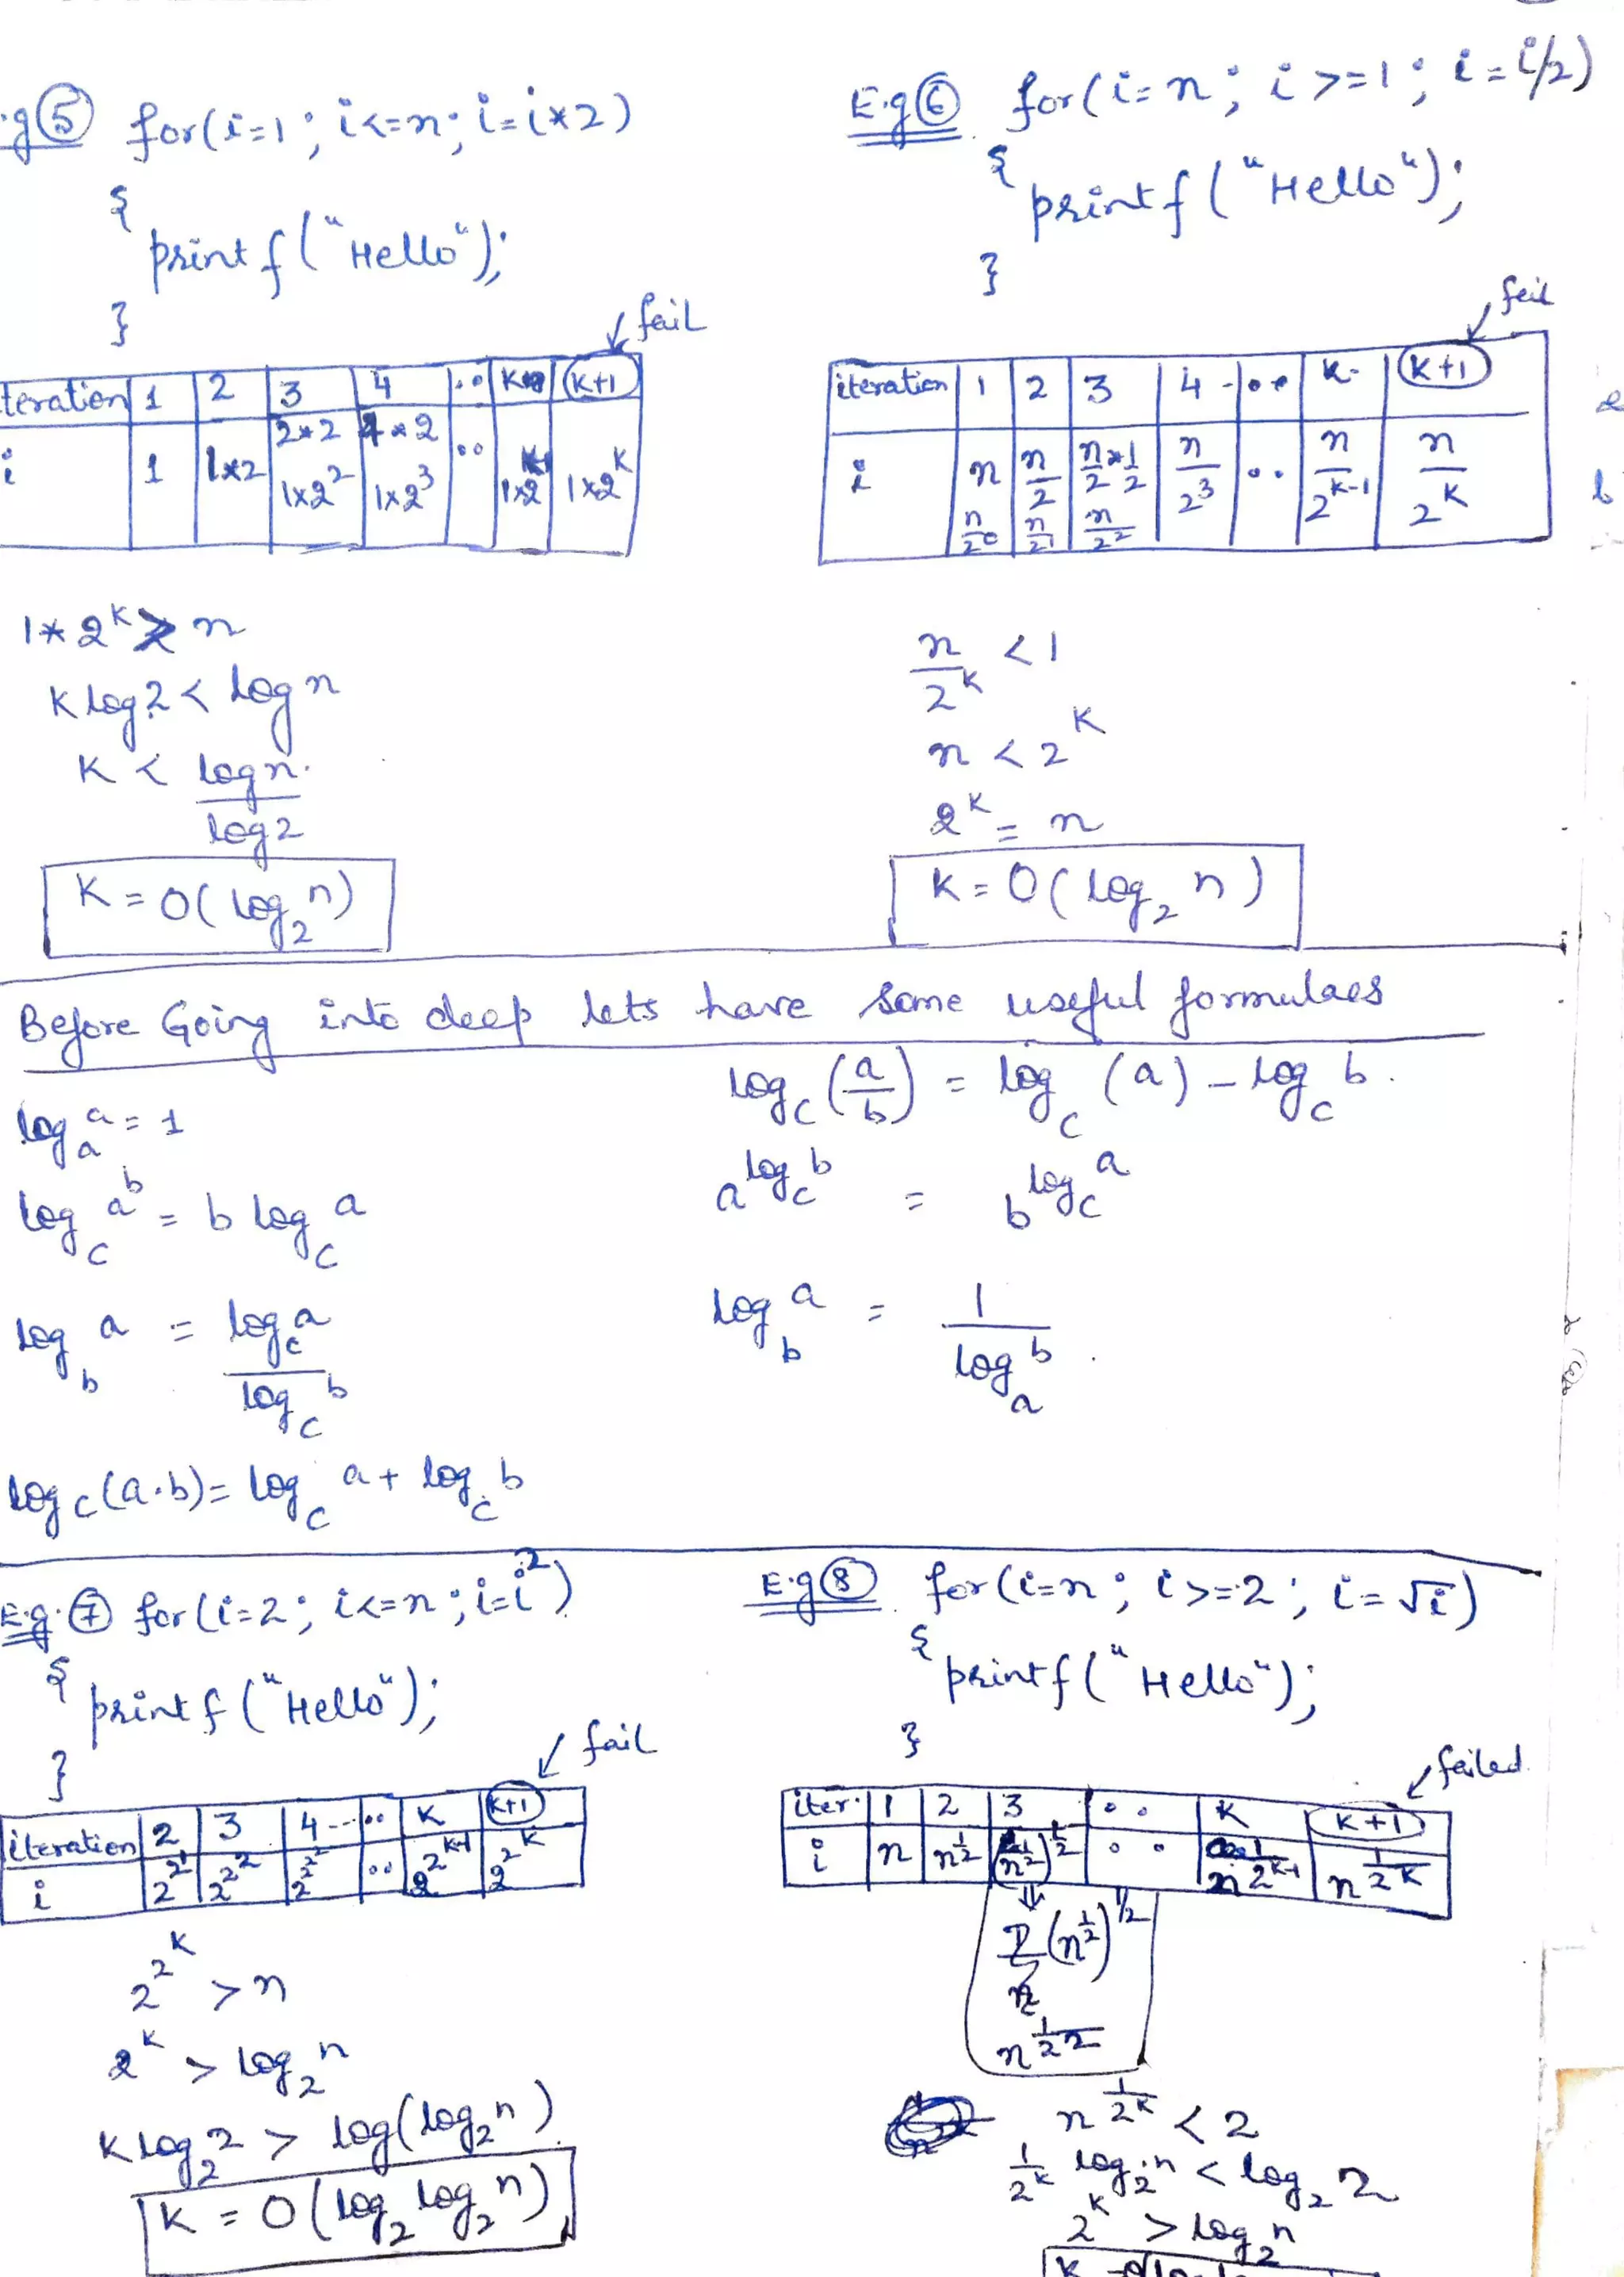 .g ⑤ for(i=1; i<=n; i=i*2)
{
printf("Hello");
}
fail
teration 1 2 3 4 .. K (K+1)
2*2 4*2
i 1 1*2 1×2² 1×2³ .. 1×2^(K-1) 1×2^K
1*2^K > n
K log 2 < log n
K < log n / log 2
K = O(log₂ n)
E.g ⑥ for(i=n; i>=1; i=i/2)
{
printf("Hello");
}
fail
iteration 1 2 3 4 -.. K- (K+1)
i n n/2 n/2*1/2 n/2³ .. n/2^(K-1) n/2^K
n/2⁰ n/2¹ n/2²
n/2^K < 1
n < 2^K
2^K = n
K = O(log₂ n)
Before Going into deep lets have some useful formulaes
log_a a = 1
log_c a^b = b log_c a
log_b a = log_c a / log_c b
log_c(a·b) = log_c a + log_c b
log_c(a/b) = log_c (a) - log_c b.
a^(log_c b) = b^(log_c a)
log_b a = 1 / log_a b.
E.g. ⑦ for(i=2; i<=n; i=i²)
{
printf("Hello");
}
fail
iteration 2 3 4--.. K (K+1)
i 2^2^1 2^2^2 2^2^2 .. 2^2^(K-1) 2^2^K
2^2^K > n
2^K > log₂ n
K log₂ 2 > log(log₂ n)
K = O(log₂ log₂ n)
E.g ⑧ for(i=n; i>=2; i=√i)
{
printf("Hello");
}
failed
iter. 1 2 3 .. K (K+1)
i n n^(1/2) (n^(1/2))^(1/2) .. n^(1/2^(K-1)) n^(1/2^K)
⇓
(n^(1/2))^(1/2)
n^(1/2²)
n^(1/2^K) < 2
1/2^K log₂ n < log₂ 2
2^K > log₂ n